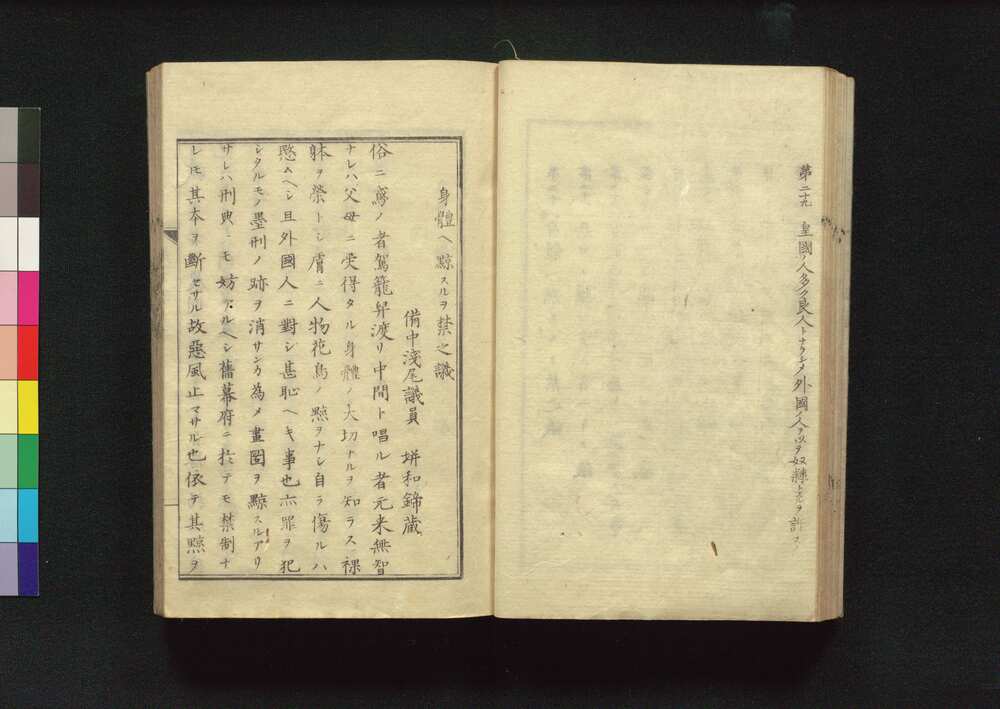 第二十九 皇國ノ人多ク良人トナラシメ外國ノ人ヲ以テ奴隷ト爲ヲ許ス
身體ヘ黥スルヲ禁之議
備中淺尾議員 垪和錦蔵
俗ニ鳶ノ者駕籠舁渡リ中間ト唱ル者元来無智
ナレハ父母ニ受得タル身體ノ大切ナルヲ知ラス裸
躰ヲ榮トシ膚ニ人物花鳥ノ黥ヲナシ自ラ傷ルハ
愍ムヘシ且外國人ニ對シ甚恥ヘキ事也亦罪ヲ犯
シタルモノ墨刑ノ跡ヲ消サンカ為メ畫圖ヲ黥スルアリ
サレハ刑典ニモ妨アルヘシ舊幕府ニ於テモ禁制ナ
レ𪜈其本ヲ斷セサル故惡風止マサル也依テ其黥ヲ